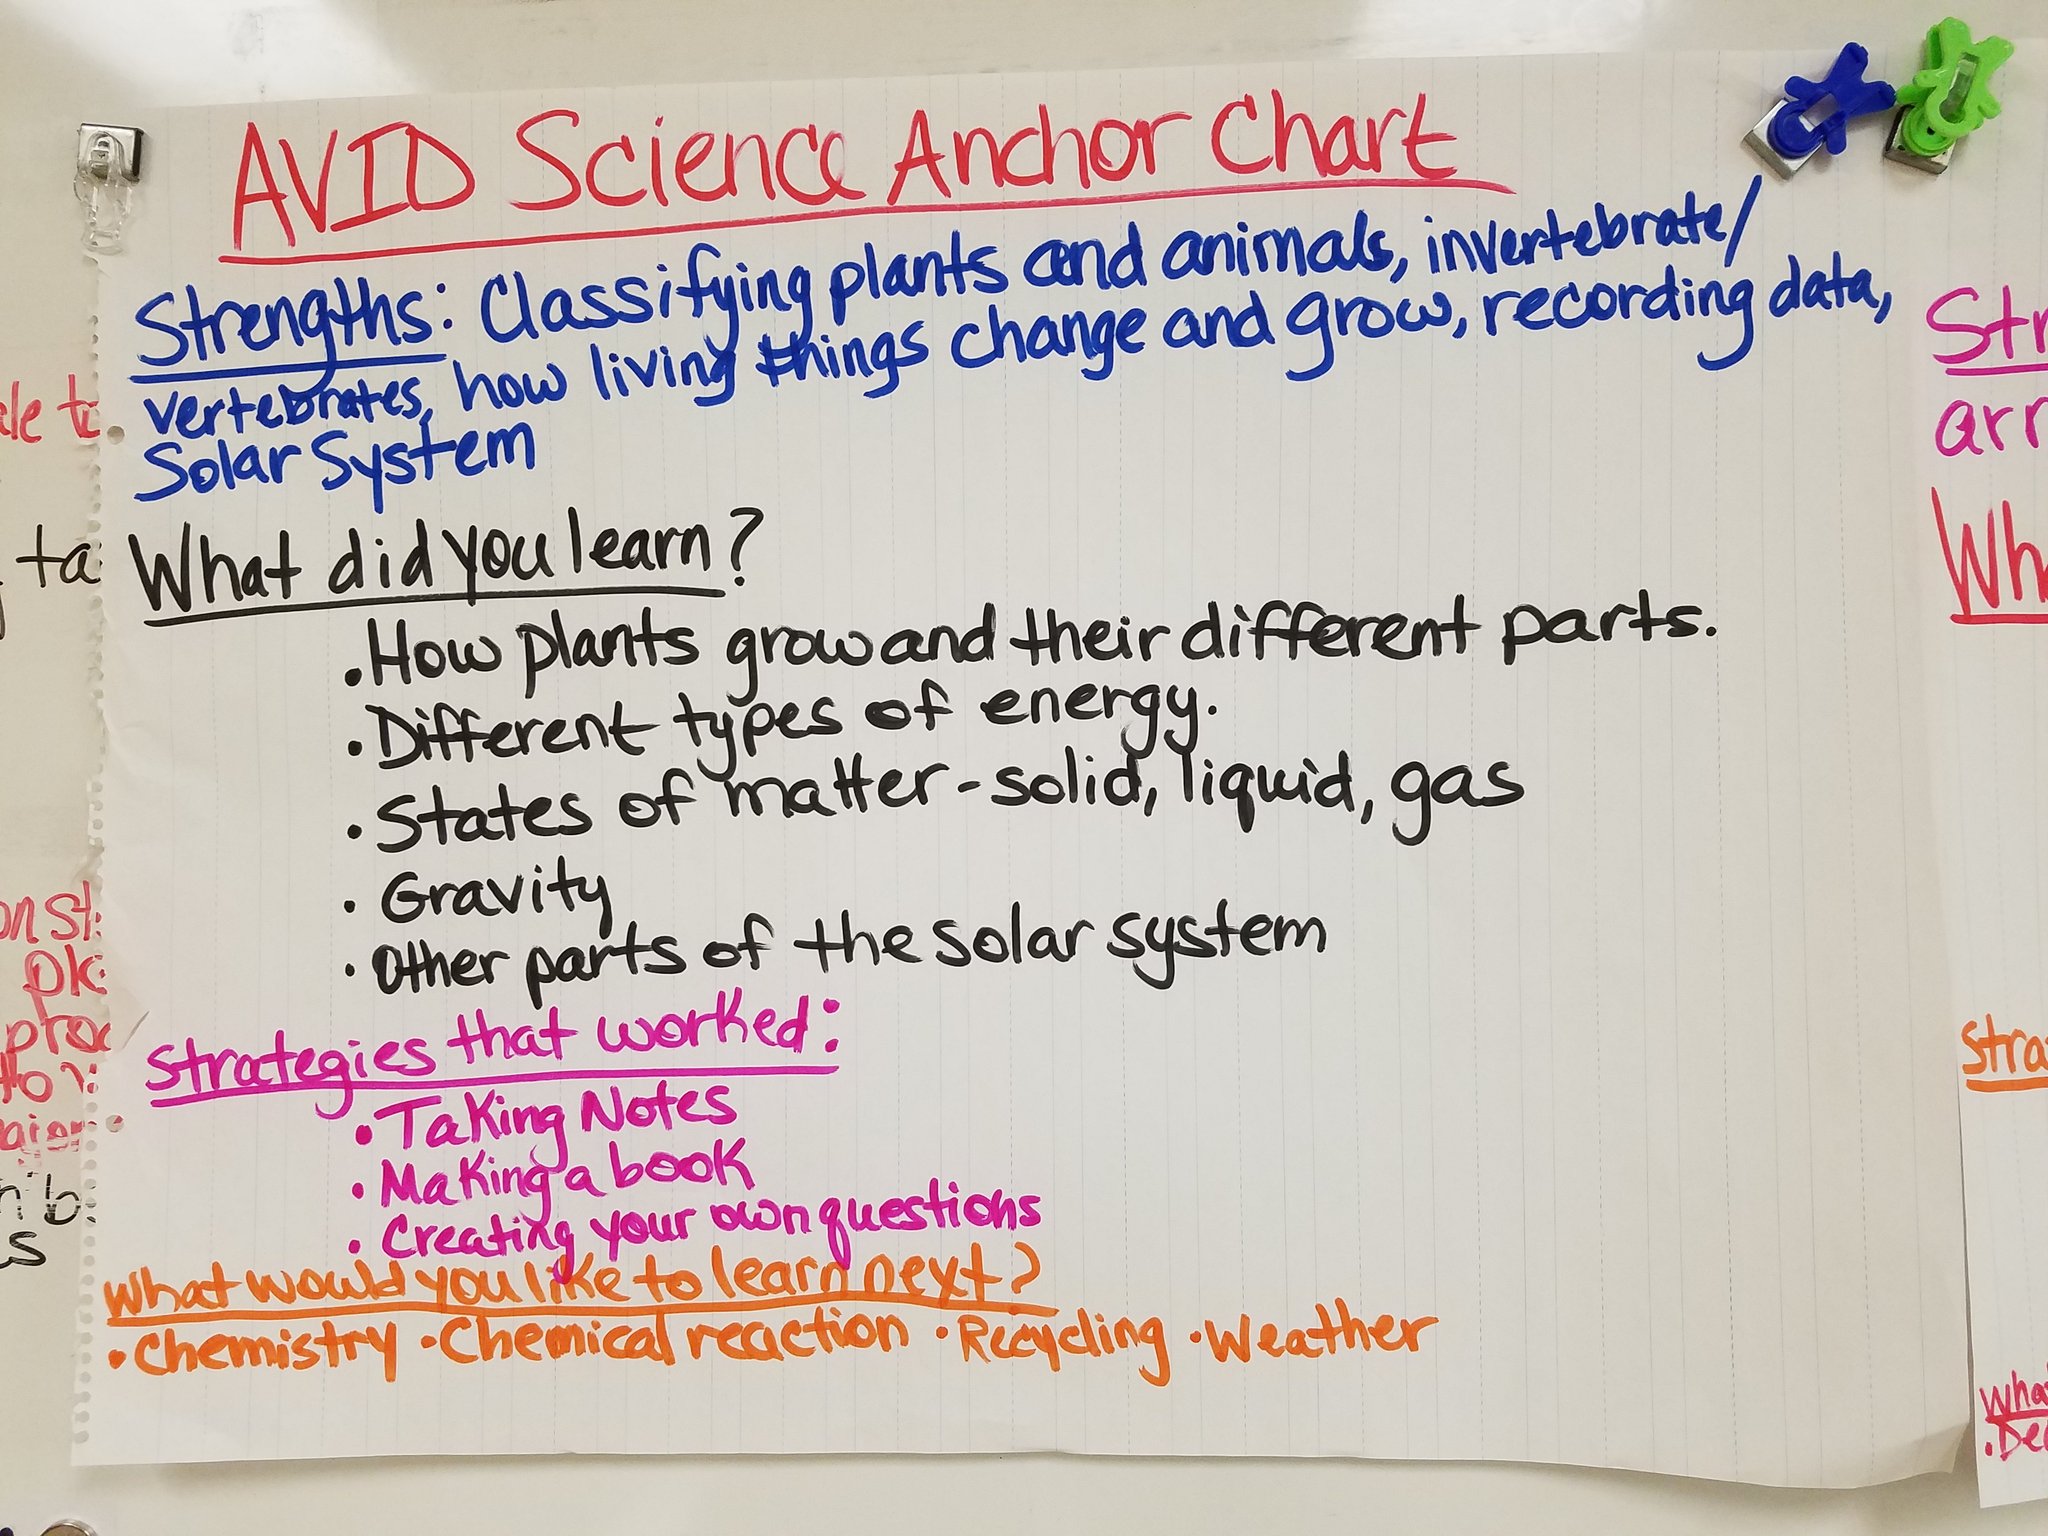 AVID Science Anchor Chart
Strengths: Classifying plants and animals, invertebrate/
vertebrates, how living things change and grow, recording data,
Solar System
What did you learn?
• How plants grow and their different parts.
• Different types of energy.
• States of matter - solid, liquid, gas
• Gravity
• Other parts of the solar system
Strategies that worked:
• Taking Notes
• Making a book
• Creating your own questions
What would you like to learn next?
• Chemistry • Chemical reaction • Recycling • Weather